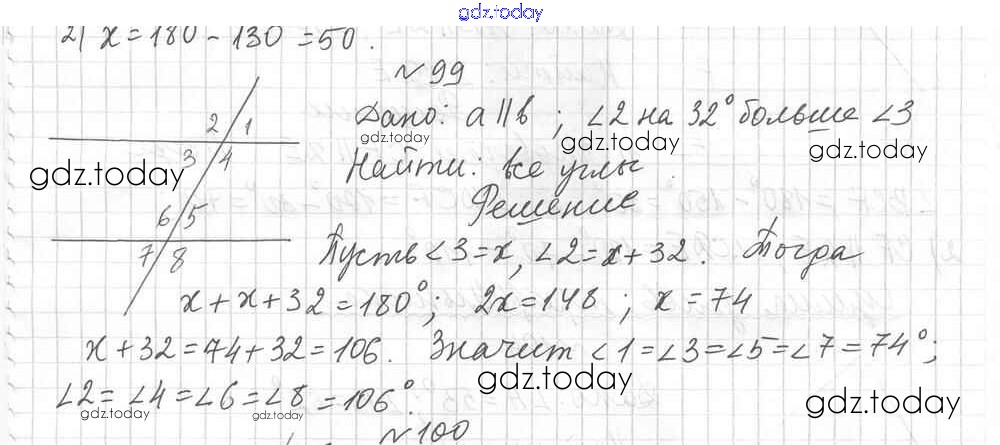 gdz.today
2) x = 180 - 130 = 50.
№ 99
Дано: a || b ; ∠2 на 32° больше ∠3
gdz.today gdz.today gdz.today
2 1
3 4
gdz.today
6 5
7 8
Найти: все углы
Решение
Пусть ∠3 = x, ∠2 = x + 32. Тогда
x + x + 32 = 180°; 2x = 148 ; x = 74
x + 32 = 74 + 32 = 106. Значит ∠1 = ∠3 = ∠5 = ∠7 = 74°;
∠2 = ∠4 = ∠6 = ∠8 = 106°.
gdz.today gdz.today gdz.today gdz.today
№ 100